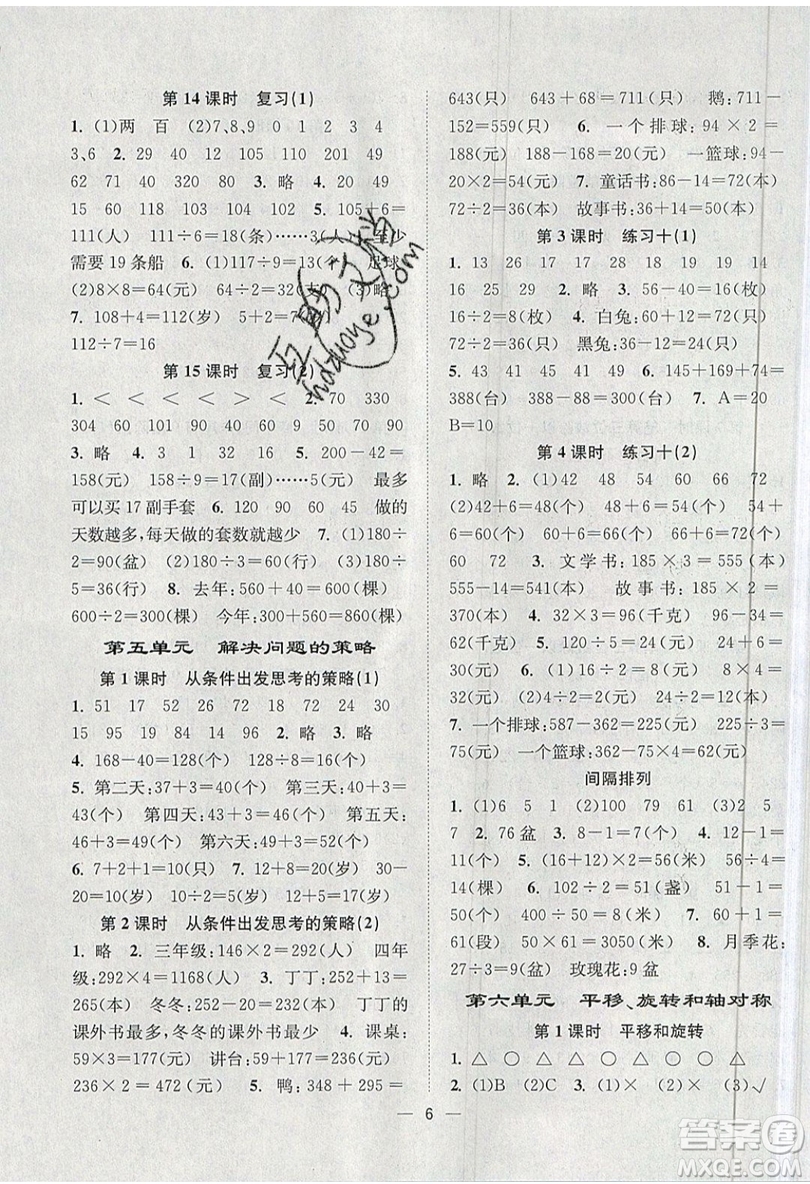 第 14 课时　复习(1)
1. (1)两　百　(2)7、8、9　0　1　2　3　4
3、6　2. 29　40　110　105　110　201　49
62　71　40　320　3. 略　4. 20　51　49
15　60　118　103　104　102　5. 105＋6＝
111(人)　111÷6＝18(条)……3(人)　至少
需要 19 条船　6. (1)9÷3＝3　足球
(2)8×2＝16(元)　6＋18＝24(元)　(3)略
7. 108＋4＝112(岁)　5＋2＝7(岁)
112÷7＝16
第 15 课时　复习(2)
1. ＜　＜　＜　＞　＜　＞　2. 70　330
50　130　300　60　70　100　90　90
3. 略　4. 3　1　1　9　2　4　5. 200－42＝
158(元)　158÷9＝17(副)……5(元)　最多
可以买 17 副手套　6. 120　90　60　45　做的
天数越多，每天做的套数就越少　7. (1)180÷
2＝90(盆)　(2)180÷3＝60(行)　(3)180÷
5＝36(行)　8. 去年：560＋40＝600(棵)
600÷2＝300(棵)　今年：300＋560＝860(棵)
第五单元　解决问题的策略
第 1 课时　从条件出发思考的策略(1)
1. 51　17　52　26　18　72　72　24　30
15　95　19　84　14　96　2. 略　3. 略
4. 168－40＝128(个)　128÷8＝16(个)
5. 第二天：37＋3＝40(个)　第三天：40＋3＝
43(个)　第四天：43＋3＝46(个)　第五天：
46＋3＝49(个)　第六天：49＋3＝52(个)
6. 7＋2＋1＝10(只)　7. 22＋8＝30(岁)　30－
20＝10(岁)　10＋10＝20(岁)
第 2 课时　从条件出发思考的策略(2)
1. 略　2. 三年级：146×2＝292(人)　四年
级：292×4＝1168(人)　3. 丁丁：252＋13＝
265(本)　冬冬：252－10＝242(本)　丁丁的
课外书最多，冬冬的课外书最少　4. 课桌：
59×3＝177(元)　讲台：177＋59＝236(元)
236×2＝472(元)　5. 鸭：348＋295＝
643(只)　643＋68＝711(只)　鹅：711－
152＝559(只)　6. 一个排球：94×2＝
188(元)　188－168＝20(元)　一篮球：94－
20×2＝54(元)　7. 童话书：86－14＝72(本)
72÷2＝36(本)　故事书：36＋14＝50(本)
第 3 课时　练习十(1)
1. 13　26　28　17　34　36　15　45　14
16　25　29　2. 略　3. 56－40＝16(枚)
16÷2＝8(枚)　4. 白兔：3×2＝6(只)
黑兔：6×3＝18(只)
5. 43　41　49　85　6. 145＋169＋74＝
388(台)　388－88＝300(台)　7. A＝20
B＝10
第 4 课时　练习十(2)
1. 略　2. (1)42　48　54　60　66　72
(2)42＋6＝48(个)　48＋6＝54(个)　54＋
6＝60(个)　60＋6＝66(个)　66＋6＝72(个)
60　72　3. 文学书：185×3＝555(本)
555－14＝541(本)　故事书：185×2＝
370(本)　4. 32×3＝96(千克)　96－34＝
62(千克)　5. 90÷3＝30(元)　30×5＝
150(元)　6. 12÷2＝6(岁)　6÷2＝3(岁)
7. 一个排球：587－362＝225(元)　225÷3＝
75(元)　一个篮球：362－225＝137(元)
间隔排列
1. (1)6　5　(2)100　79　61　(3)2　5
7　2. 76 盆　3. 8－1＝7(个)　4. 12－1＝
11(个)　5. 7－1＝6(个)　56÷(6＋1)＝
14(棵)　6. 102÷2＝51(盏)
900－400＝500(米)　7. 60＋1＝
61(段)　50×61＝3050(米)　8. 月季花：
27÷3＝9(盆)　玫瑰花：9 盆
第六单元　平移、旋转和轴对称
第 1 课时　平移和旋转
1. △　○　△　○　△　△　○　△
2. (1)B　(2)C　3. (1)×　(2)×　(3)√
— 6 —
互助文档
hdzuoye.com
答案圈
MXQE.COM